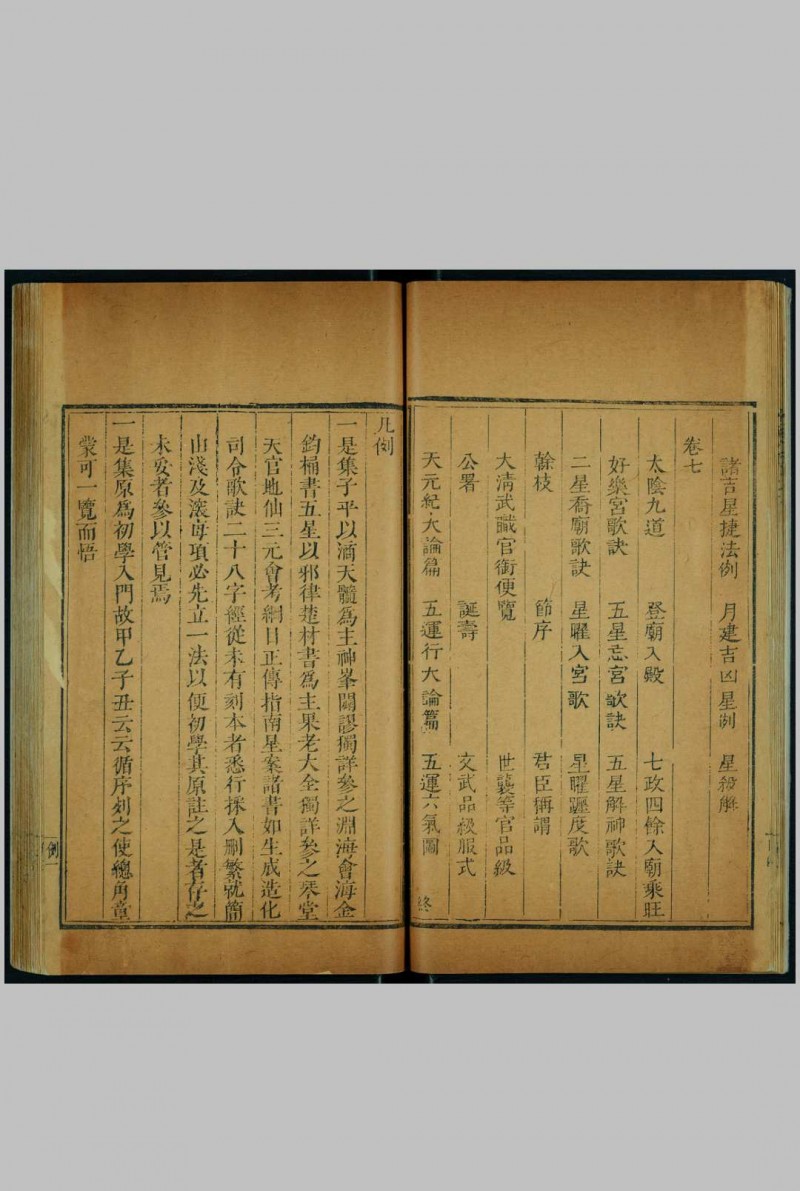 諸吉星捷法例　月建吉凶星例　星殺解
卷七
太陰九道　登廟入殿　七政四餘入廟乘旺
好樂宮歌訣　五星忘宮歌訣　五星解神歌訣
二星喬廟歌訣　星曜入宮歌　星曜躔度歌
榦枝　節序　君臣稱謂
大清武職官銜便覽　世襲等官品級
公署　誕壽　文武品級服式
天元紀大論篇　五運行大論篇　五運六氣圖　終
凡例
一是集子平以滴天髓爲主神峯闢謬獨詳參之淵海會海金
鈞桶書五星以邪律楚材書爲主果老大全獨詳參之琴堂
天官地仙三元會考綱目正傳指南星案諸書如生成造化
司令歌訣二十八字經從未有刻本者悉行採入刪繁就簡
由淺及深每項必先立一法以便初學其原註之是者存之
未妥者參以管見焉
一是集原爲初學入門故甲乙子丑云云循序刻之使總角童
蒙可一覽而悟
例一